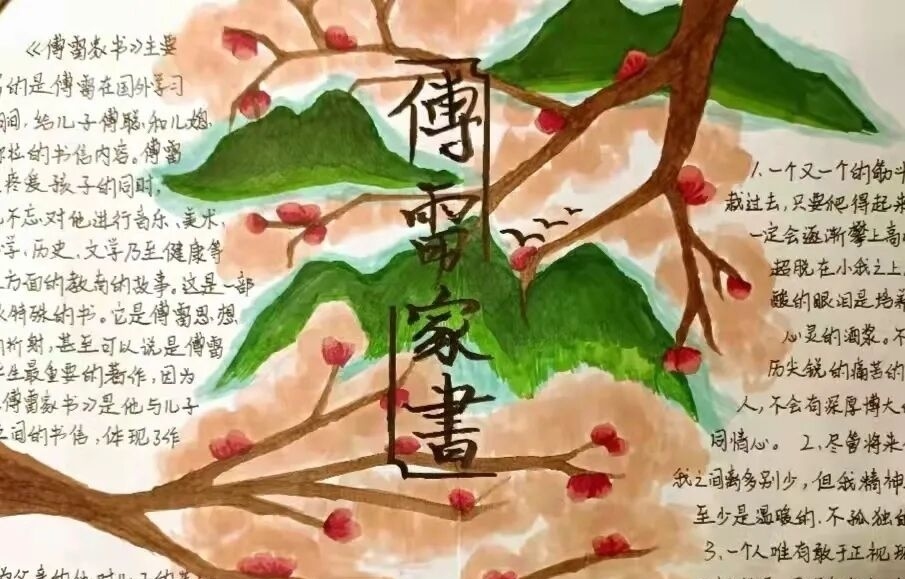 《傅雷家书》主要
的是傅雷在国外学习
间,给儿子傅聪和儿媳
拉的书信内容。傅雷
疼爱孩子的同时,
不忘对他进行音乐、美术、
学、历史、文学乃至健康等
方面的教育的故事。这是一部
特殊的书。它是傅雷思想
折射,甚至可以说是傅雷
生最重要的著作,因为
傅雷家书》是他与儿子
之间的书信,体现了作
傅雷家書
1.一个又一个的筋斗
栽过去,只要爬得起来
一定会逐渐攀上高
超脱在小我之上
酸的眼泪是培养
心灵的酒浆。不
历尖锐的痛苦的
人,不会有深厚博大
同情心。 2.尽管将来
我之间离多别少,但我精神
至少是温暖的,不孤独的
3.一个人唯有敢于正视现